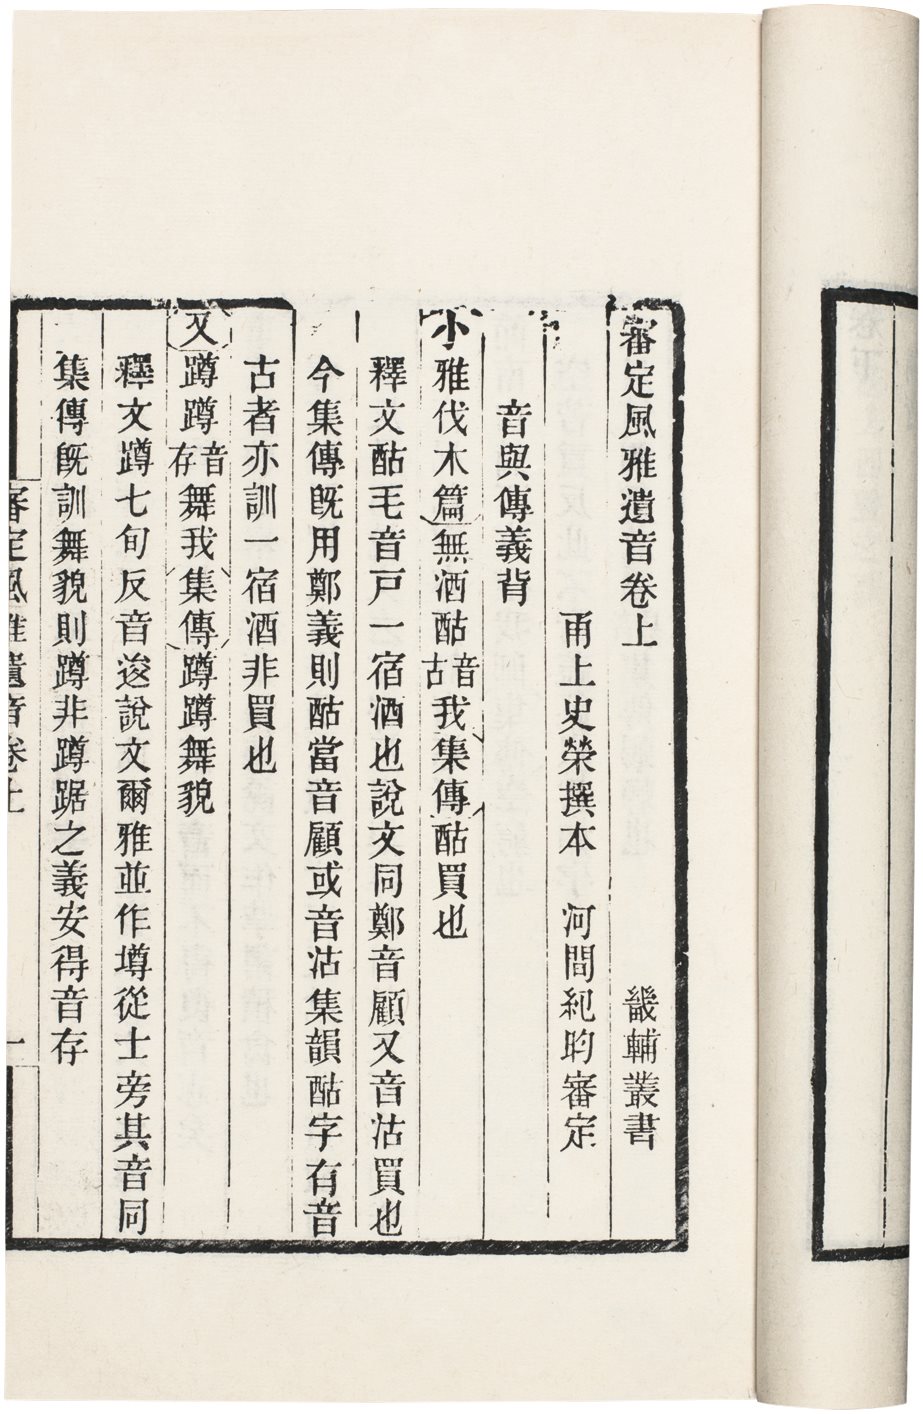 審定風雅遺音卷上　畿輔叢書
甬上史榮撰本　河間紀昀審定
音與傳義背
小雅伐木篇無酒酤音古我集傳酤買也
釋文酤毛音戸一宿酒也說文同鄭音顧又音沽買也
今集傳旣用鄭義則酤當音顧或音沽集韻酤字有音
古者亦訓一宿酒非買也
又蹲蹲音存舞我集傳蹲蹲舞貌
釋文蹲七旬反音逡說文爾雅並作墫從士旁其音同
集傳旣訓舞貌則蹲非蹲踞之義安得音存
審定風雅遺音卷上　一